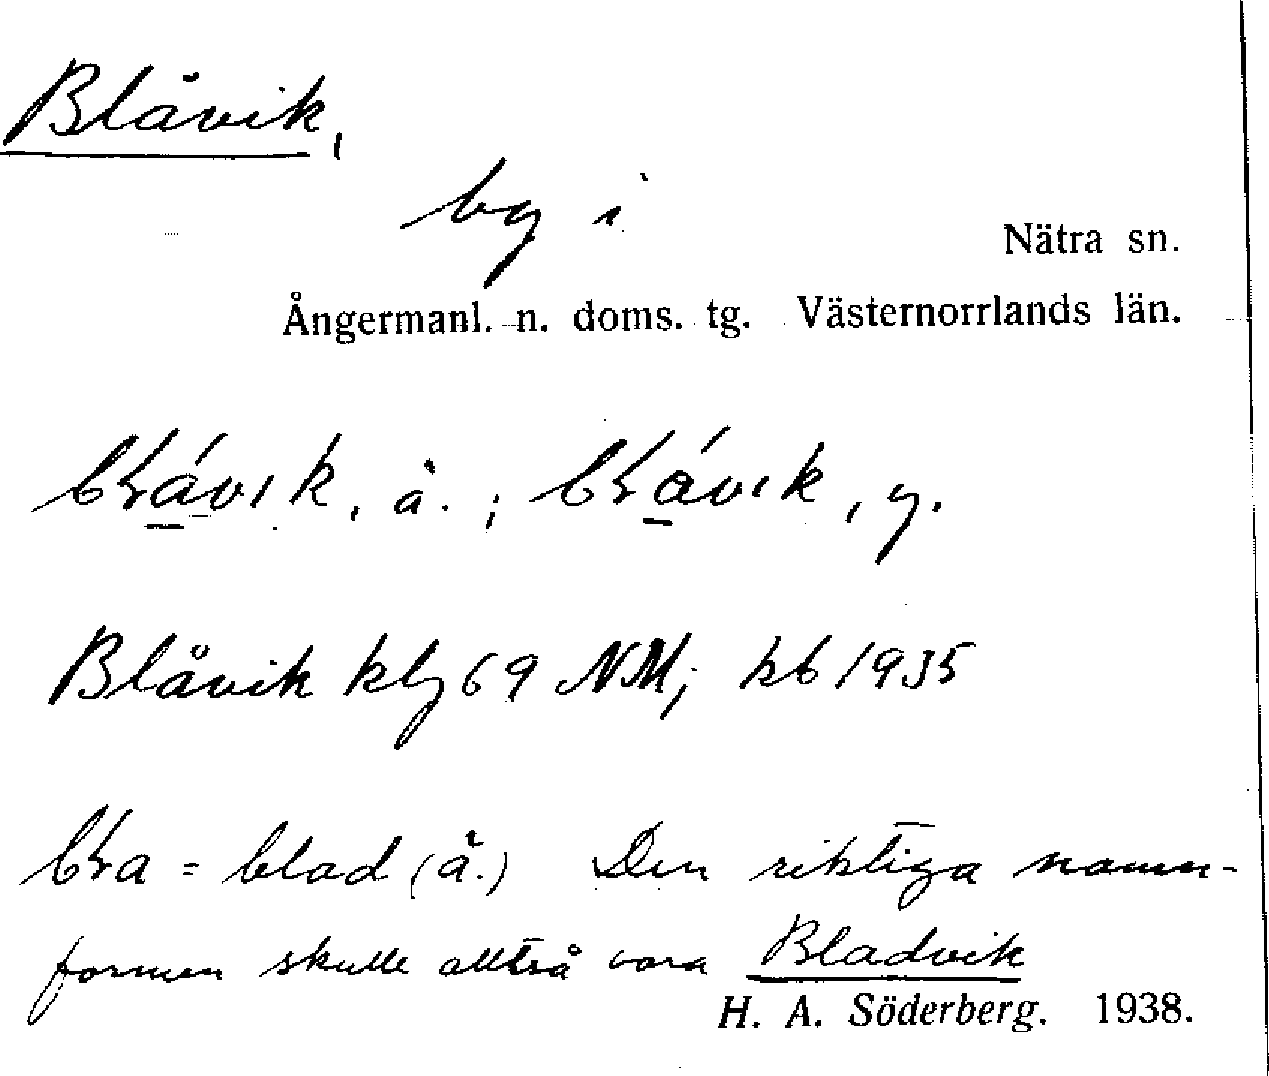 Blåvik,
by i
Nätra sn.
Ångermanl. n. doms. tg. Västernorrlands län.
å. ; y.
Blåvik klg 69 NM; kb 1935
= blad (å.) Den riktiga namn-
formen skulle alltså vara Bladvik
H. A. Söderberg. 1938.